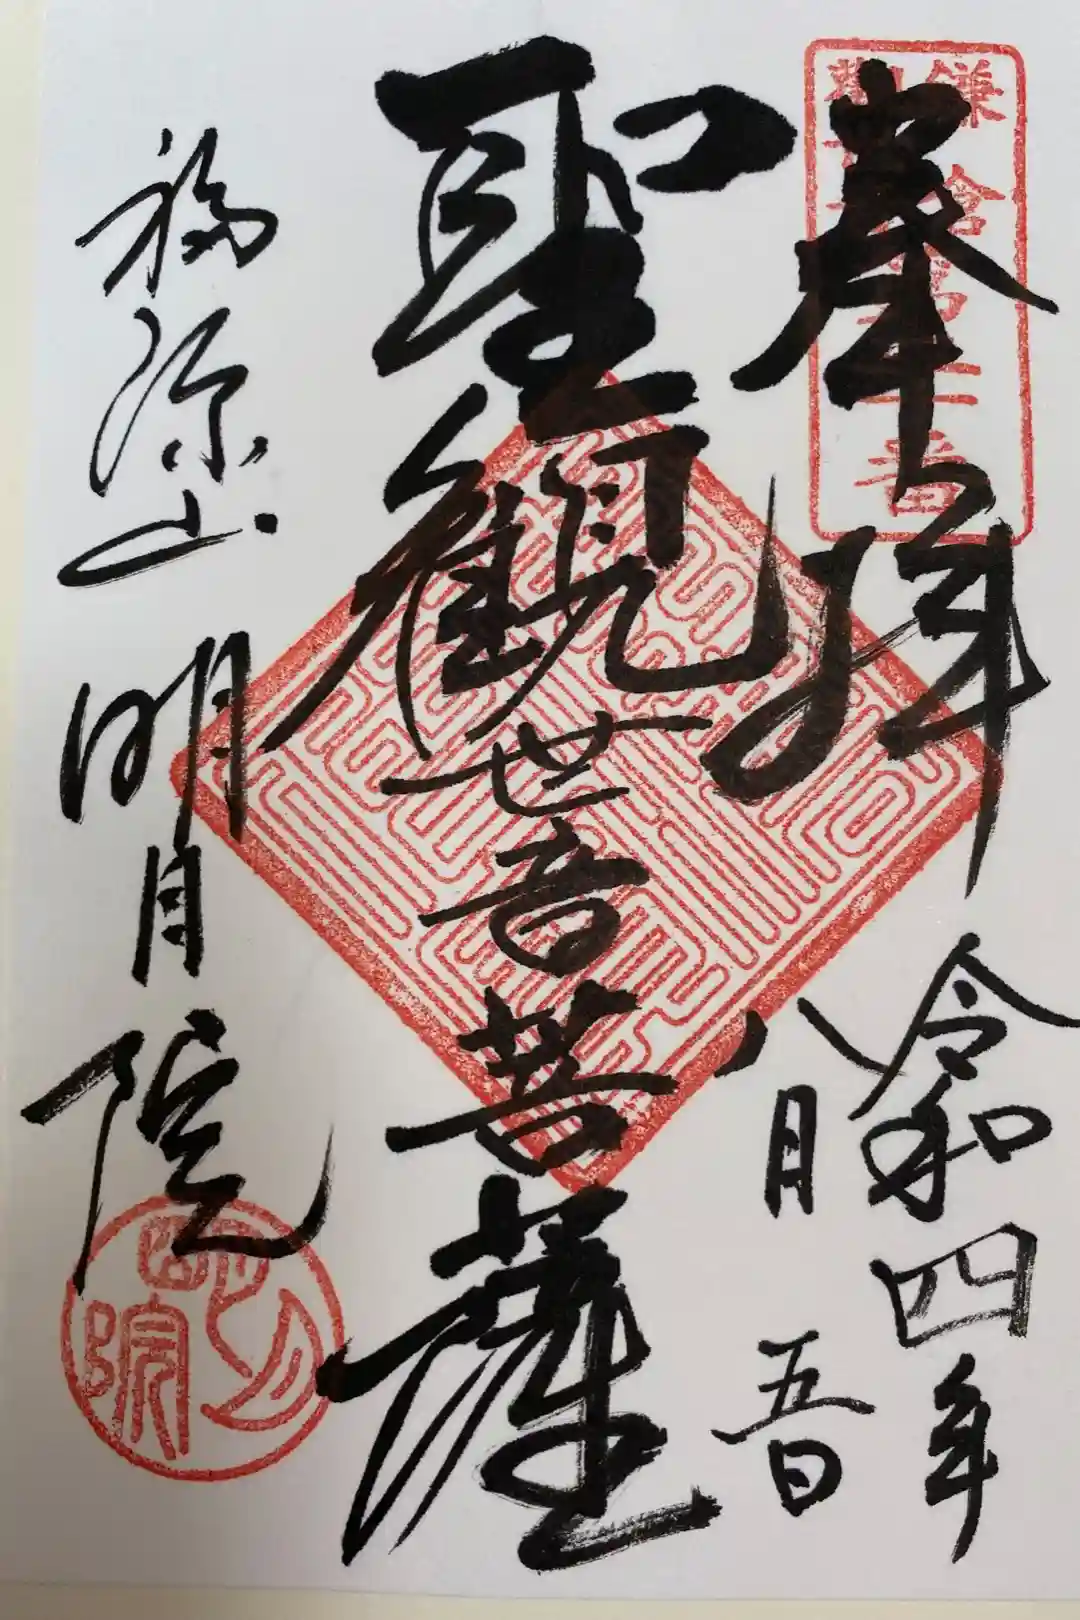 鎌倉
番
奉拝
令和四年
八月五日
聖観世音菩薩
福源山
明月院